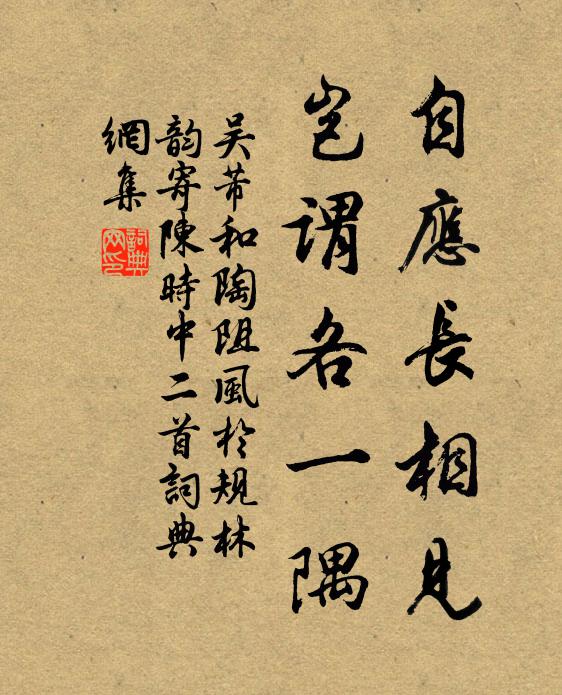 自應長相見
豈謂各一隅
吴芾和陶阻風於規林
韵寄陳時中二首詞典
網集
詞典
网印